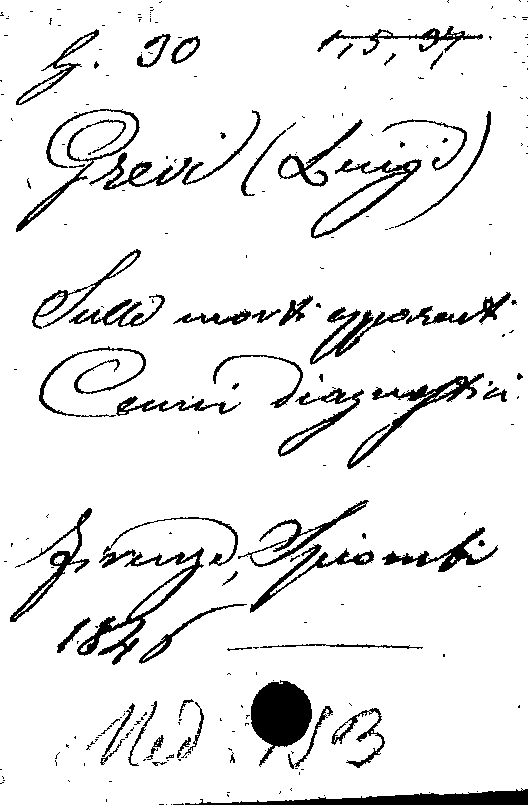 G. 30 1, 5, 37
Grevi (Luigi)
Sulle morti apparenti
Cenni diagnostici
Firenze, Spiombi
1846
Med.